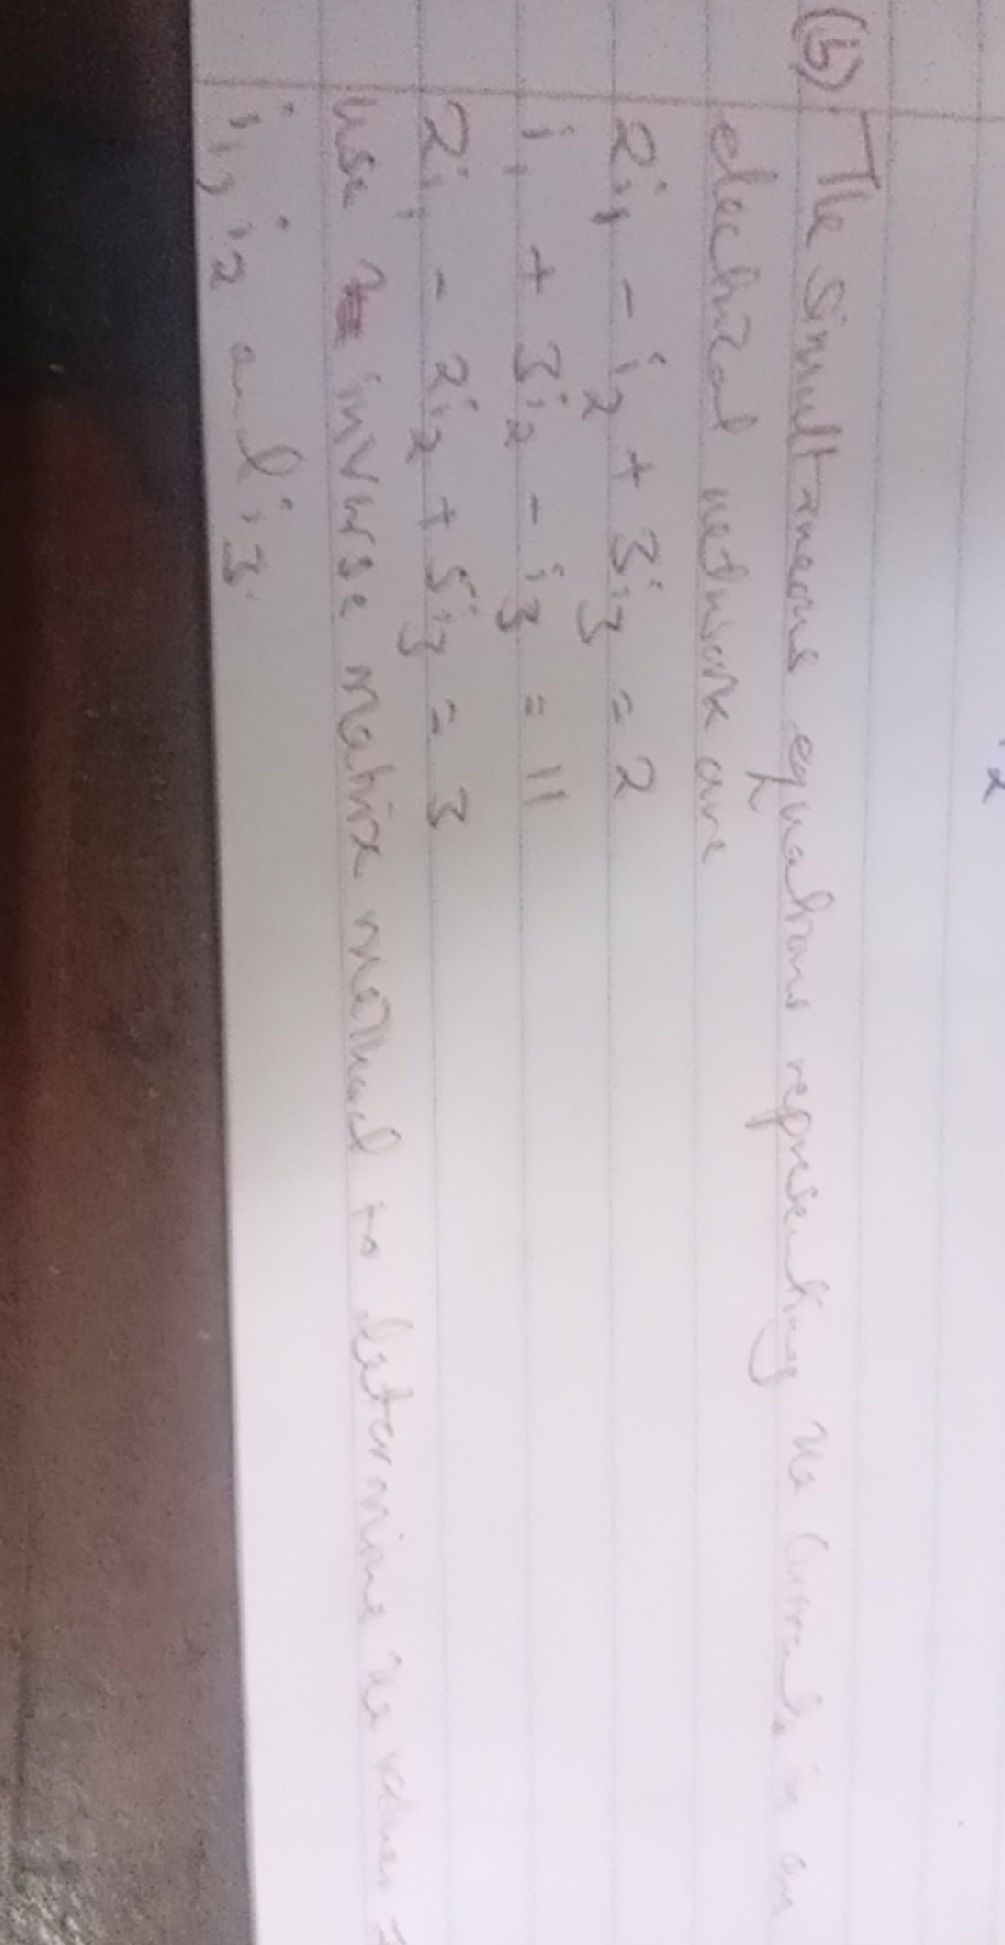 (b) The simultaneous equations representing the currents in an
electrical network are
2i₁ - i₂ + 3i₃ = 2
i₁ + 3i₂ - i₃ = 11
2i₁ - 2i₂ + 5i₃ = 3
use inverse matrix method to determine the values
i₁, i₂ and i₃.
2